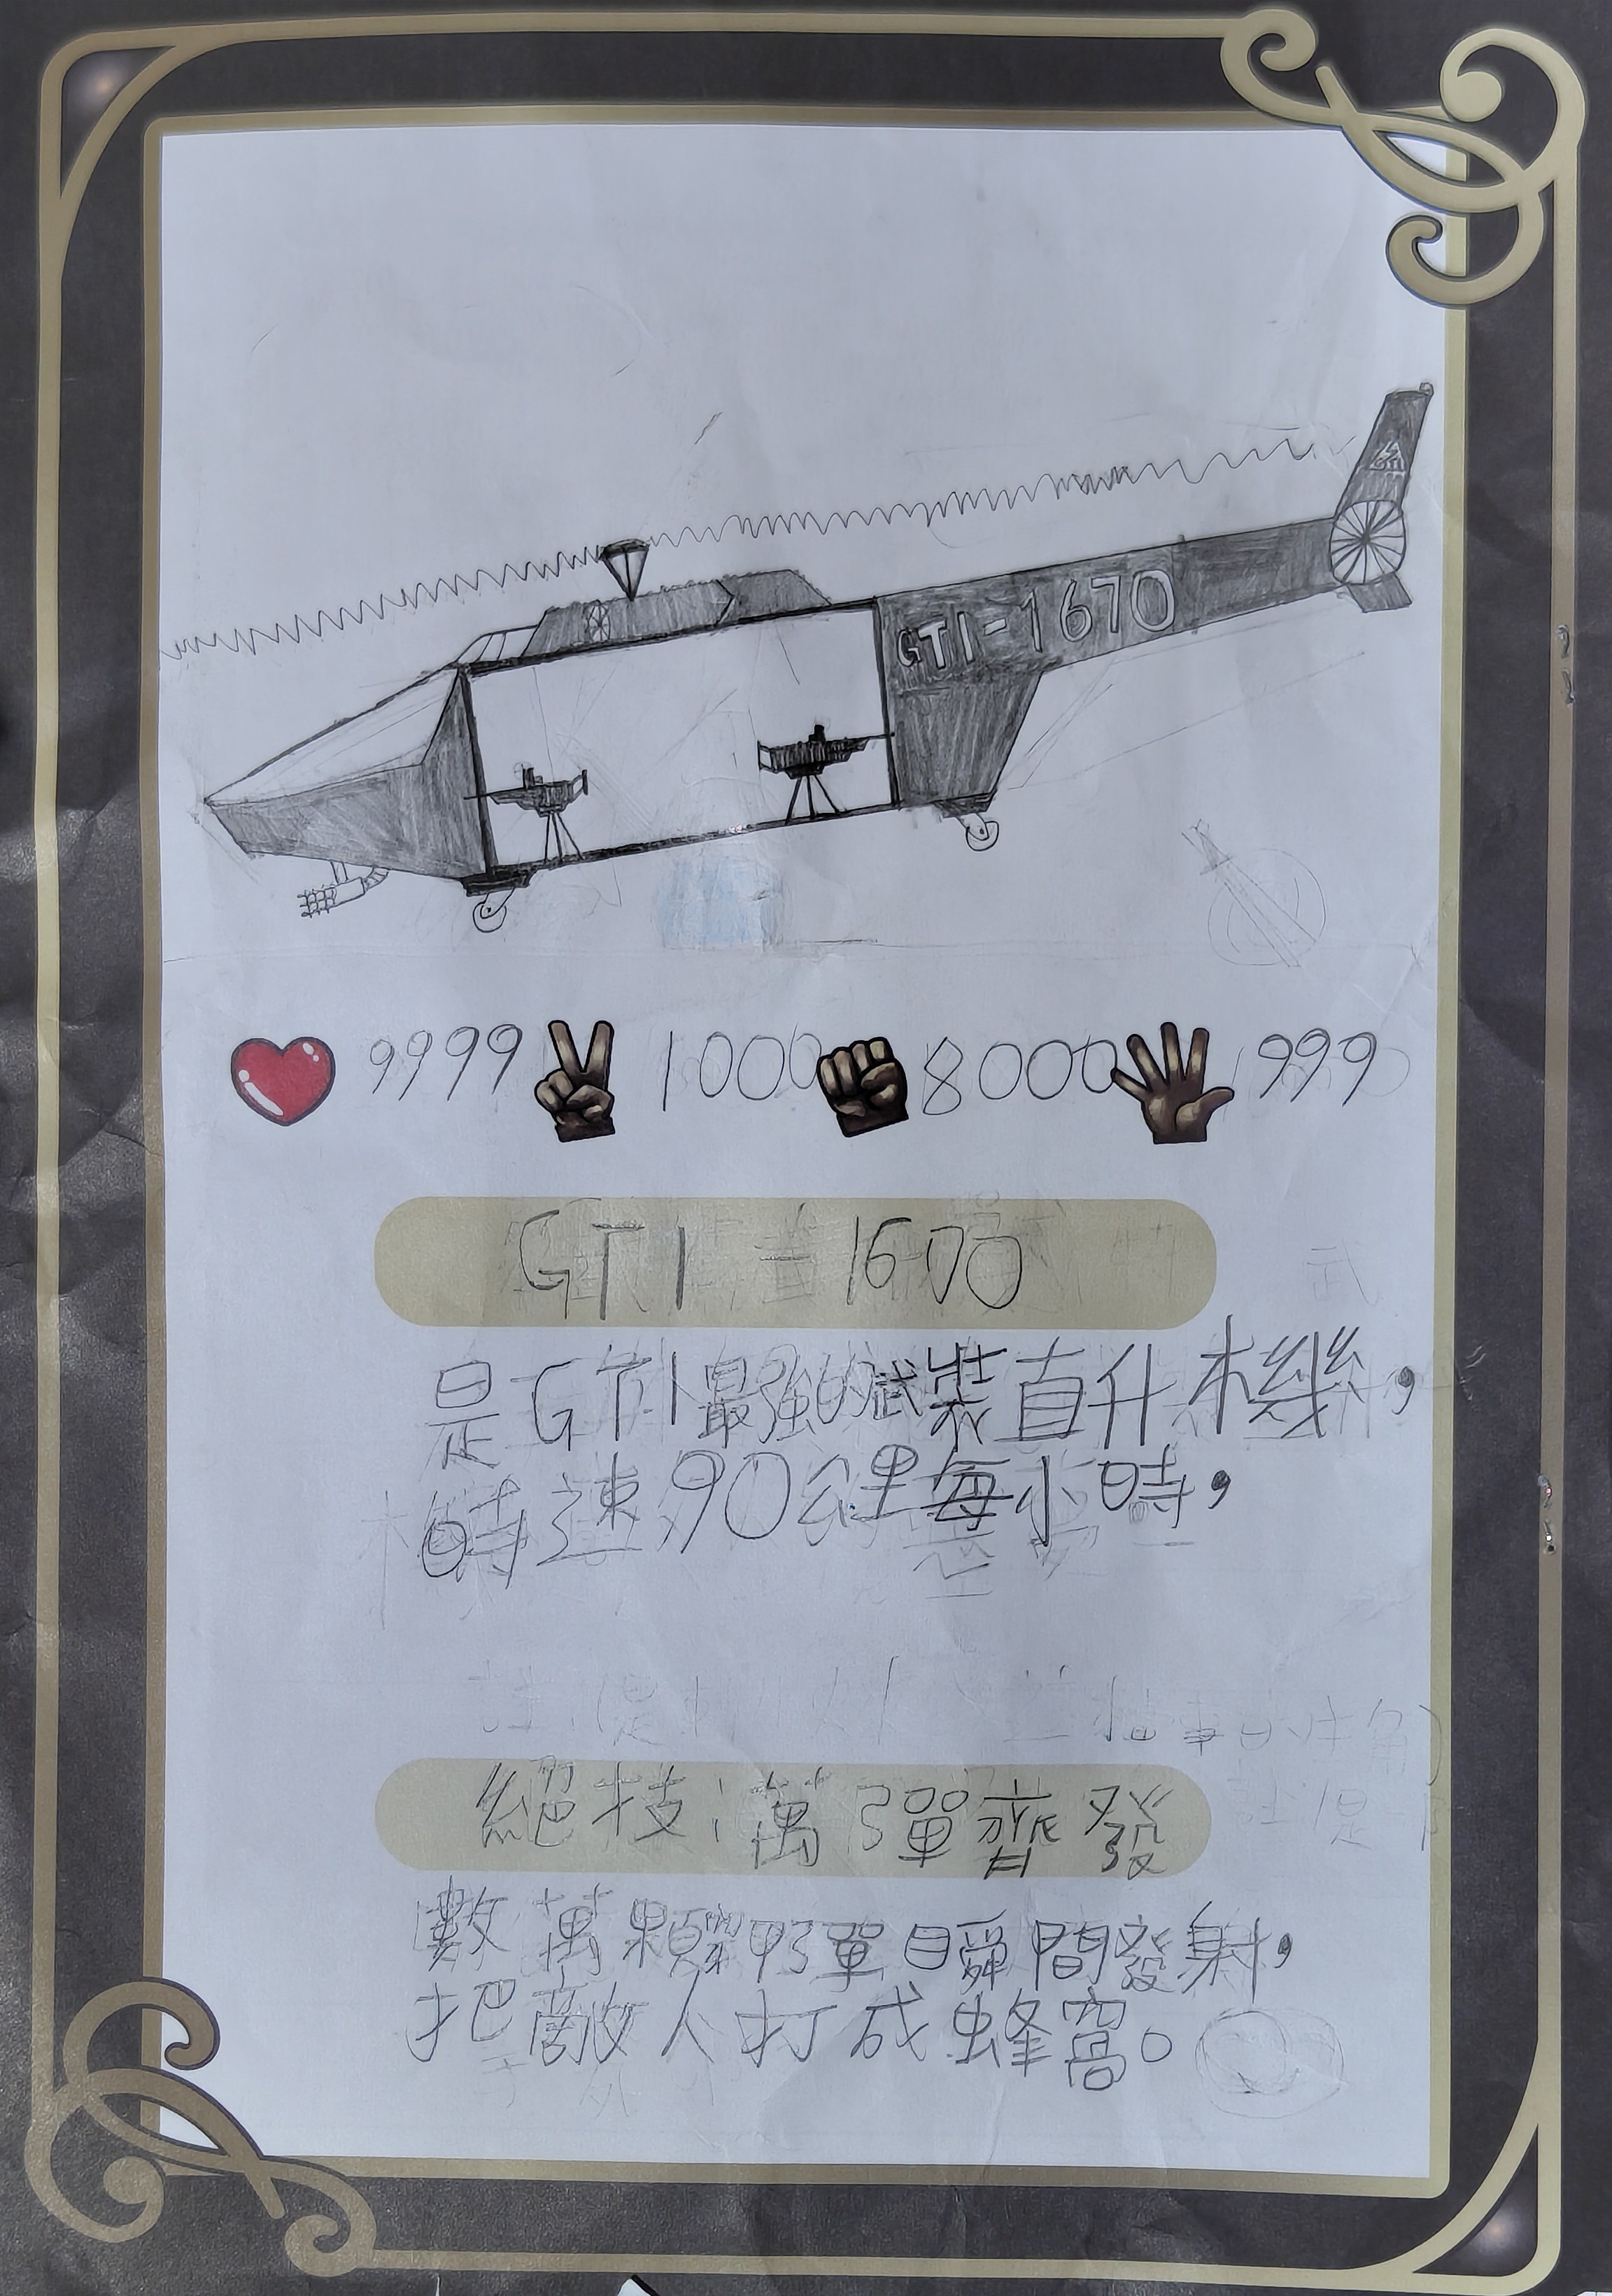 GTI
GTI-1670
9999 1000 8000 999
GTI-1670
是GTI最強的武裝直升機，
時速90公里每小時，
絕技：萬彈齊發
數萬顆砲彈瞬間發射，
把敵人打成蜂窩。